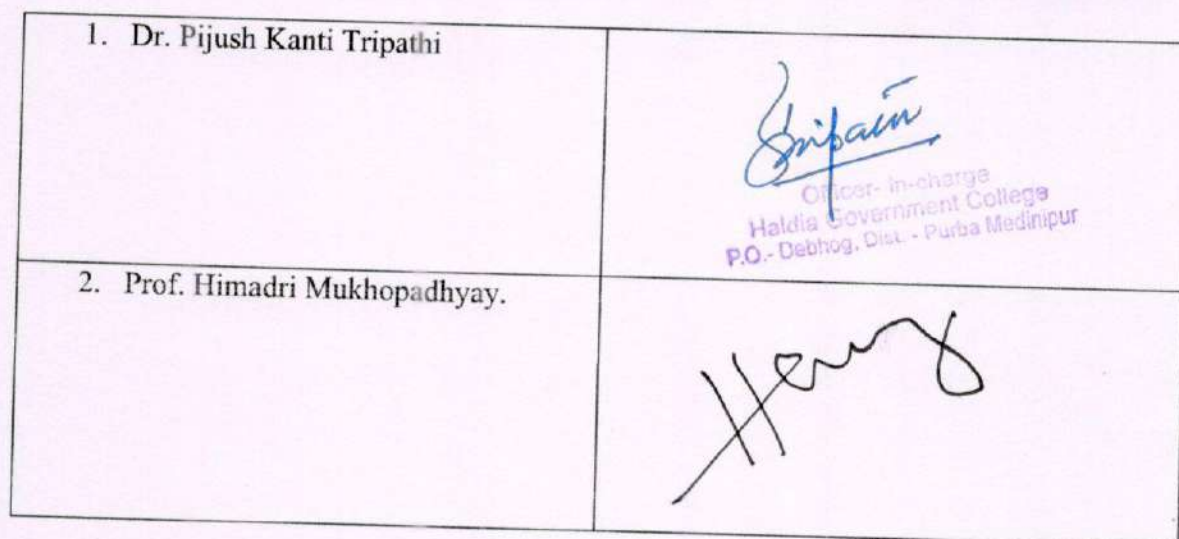 1. Dr. Pijush Kanti Tripathi
Officer- in-charge
Haldia Government College
P.O.- Debhog, Dist. - Purba Medinipur
2. Prof. Himadri Mukhopadhyay.